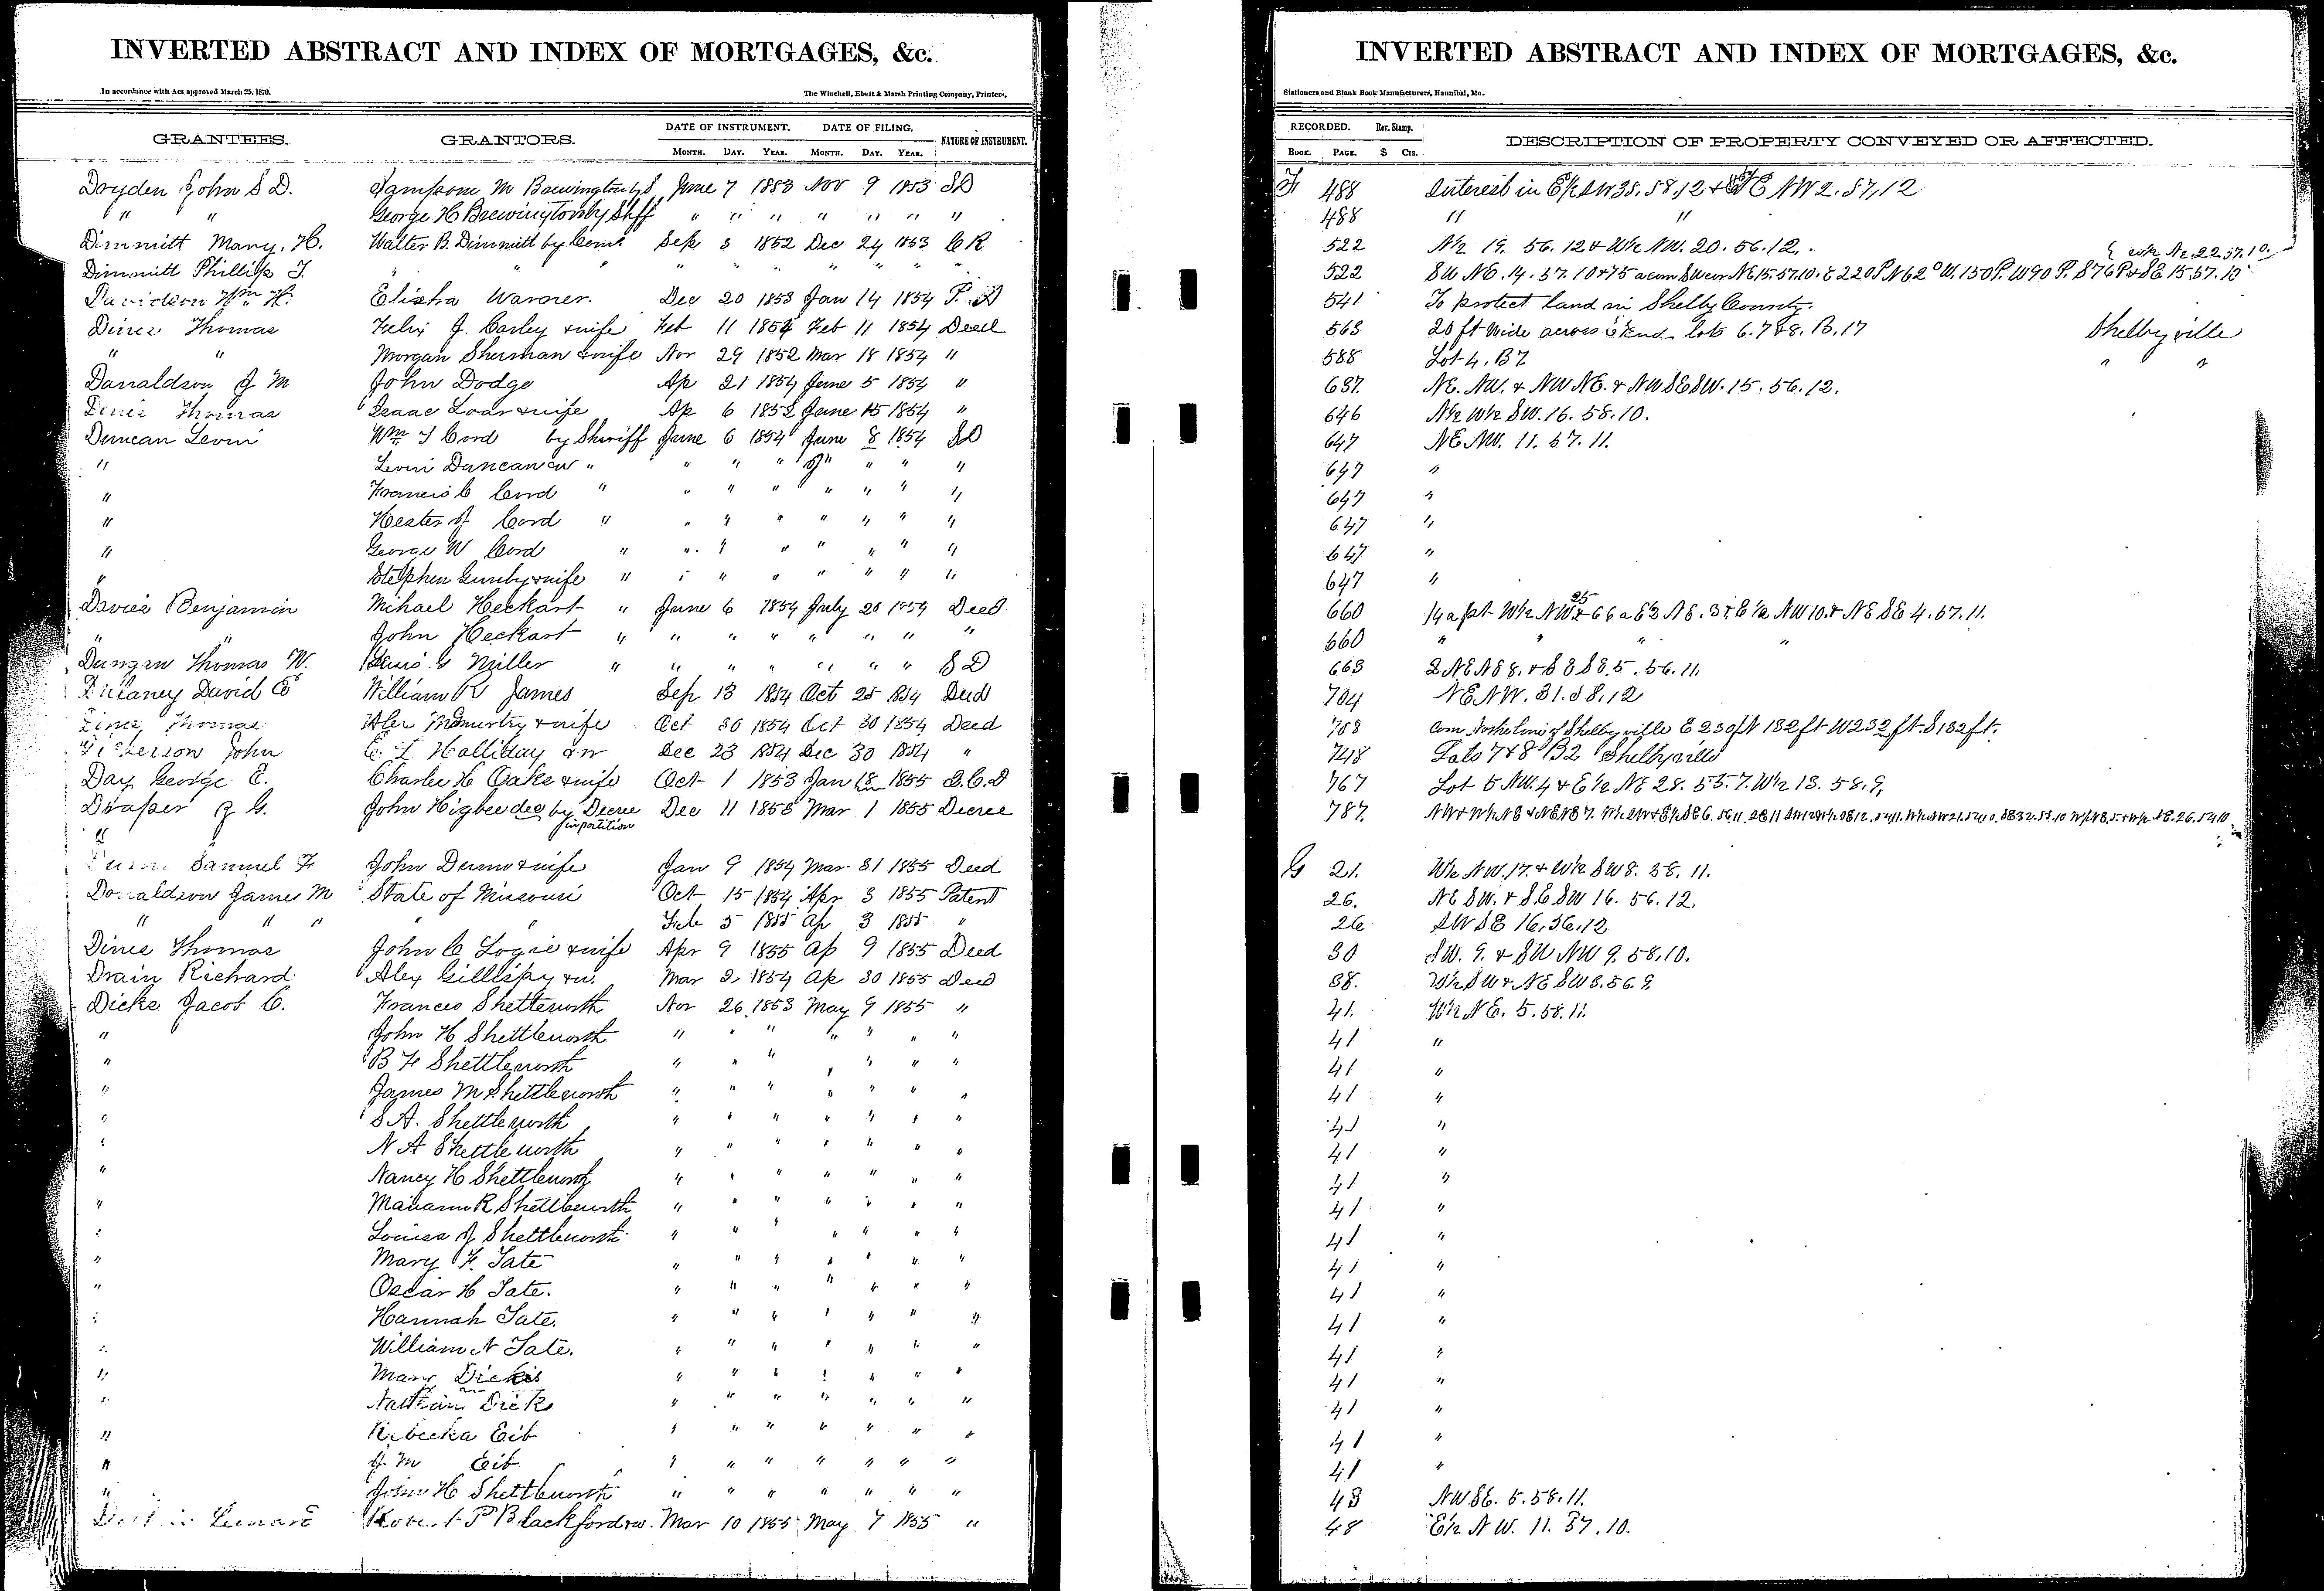 INVERTED ABSTRACT AND INDEX OF MORTGAGES, &c.
In accordance with Act approved March 25, 1879.
The Winchell, Ebert & Marsh Printing Company, Printers,
GRANTEES. GRANTORS. DATE OF INSTRUMENT. DATE OF FILING. NATURE OF INSTRUMENT.
MONTH. DAY. YEAR. MONTH. DAY. YEAR.
Dryden John S D. Sampson M Brewington by S June 7 1853 Nov 9 1853 SD
" " George H Brewington by Shff " " " " " " "
Dimmitt Mary. H. Walter B. Dimmitt by Coms Sep 3 1852 Dec 24 1853 CR
Dimmitt Phillip J. " " " " " " " "
Davidson Wm H. Elisha Warner. Dec 20 1853 Jan 14 1854 P. A
Dines Thomas Felix J. Corley & wife Feb 11 1854 Feb 11 1854 Deed
" " Morgan Sherman & wife Nov 29 1852 Mar 18 1854 "
Donaldson J M John Dodge Ap 21 1854 June 5 1854 "
Dines Thomas Isaac Loar & wife Ap 6 1852 June 15 1854 "
Duncan Levin Wm T Cord by Sheriff June 6 1854 June 8 1854 SD
" Levin Duncan cur " " " " " " " "
" Francis C Cord " " " " " " " "
" Hester J Cord " " " " " " " "
" George W Cord " " " " " " " "
" Stephen Gunby & wife " " " " " " " "
Davies Benjamin Mihael Heckart " June 6 1854 July 20 1854 Deed
" " John Heckart " " " " " " " "
Dungan Thomas W. Miller " " " " " " " SD
Dulaney David E William R James Sep 13 1854 Oct 25 1854 Deed
Dines Thomas Alex McMurtry & wife Oct 30 1854 Oct 30 1854 Deed
Dickerson John E. L Holliday & w Dec 23 1854 Dec 30 1854 "
Day George E. Charles H Oaks & wife Oct 1 1853 Jan 18 1855 Q.C.D
Draper J G. John Higbee dec by Decree Dec 11 1853 Mar 1 1855 Decree
" in partition
Dunn Samuel F John Dunn & wife Jan 9 1854 Mar 31 1855 Deed
Donaldson James M State of Missouri Oct 15 1854 Apr 3 1855 Patent
" " " " Feb 5 1855 Ap 3 1855 "
Dines Thomas John C Logie & wife Apr 9 1855 Ap 9 1855 Deed
Drain Richard Alex Gillispy & w. Mar 2 1854 Ap 30 1855 Deed
Dicks Jacob C. Frances Shettleworth Nov 26 1853 May 9 1855 "
" John H Shettleworth " " " " " "
" B F Shettleworth " " " " " " "
" James M Shettleworth " " " " " " "
" S A. Shettleworth " " " " " " "
" N A Shettleworth " " " " " " "
" Nancy H Shettleworth " " " " " " "
" Mariann R Shettleworth " " " " " " "
" Louisa J Shettleworth " " " " " " "
" Mary F. Tate " " " " " " "
" Oscar H Tate. " " " " " " "
" Hannah Tate. " " " " " " "
" William N Tate. " " " " " " "
" Mary Dicks " " " " " " "
" Nathan Dicks " " " " " " "
" Rebecka Eib " " " " " " "
" J. M Eib " " " " " " "
" John H Shettleworth " " " " " " "
Robert P Blackford & w. Mar 10 1855 May 7 1855 "
INVERTED ABSTRACT AND INDEX OF MORTGAGES, &c.
Stationers and Blank Book Manufacturers, Hannibal, Mo.
RECORDED. Rev. Stamp. DESCRIPTION OF PROPERTY CONVEYED OR AFFECTED.
BOOK. PAGE. $ Cts.
F 488 Interest in E½ SW 35. 58. 12 & NE NW 2. 57, 12
488 " "
522 N½ 19. 56. 12 & W½ NW. 20. 56. 12. { & W½ N½ 22 57. 10.
522 SW NE. 14. 57. 10 & 75 a com SW cor NE 15. 57. 10. E 220 P N 62° W. 150 P. W 90 P. S 76 P & SE 15. 57. 10
541 To protect land in Shelby County.
563 20 ft wide across E End lots 6. 7 & 8. B. 17 Shelbyville
588 Lot 4. B 7 " "
637. NE. NW. & NW NE. & NW SE SW. 15. 56. 12.
646 N½ W½ SW. 16. 58. 10.
647 NE NW. 11. 57. 11.
647 "
647 "
647 "
647 "
647 "
660 14 a pt W½ NW 25 & 66 a E½ NE. 3 & E½ NW 10. & NE SE 4. 57. 11.
660 " " " "
663 2 NE NE 8. & S S SE. 5. 56. 11.
704 NE NW. 31. 58, 12
708 Com North line of Shelbyville E 230 ft N 132 ft W 232 ft. S 132 ft.
748 Lots 7 & 8 B 2 Shelbyville
767 Lot 5 NW. 4 & E½ NE 28. 58. 7. W½ 13. 58. 9.
787.
G 21. W½ NW. 17. & W½ SW 8. 58. 11.
26. NE SW. & SE SW 16. 56. 12.
26 SW SE 16, 56, 12
30 SW. 9. & SW NW 9. 58, 10.
38. W½ SW & NE SW 3. 56. 9.
41. W½ NE. 5. 58. 11.
41 "
41 "
41 "
41 "
41 "
41 "
41 "
41 "
41 "
41 "
41 "
41 "
41 "
41 "
41 "
41 "
43 NW SE. 5. 58. 11.
48 E½ NW. 11. 57. 10.